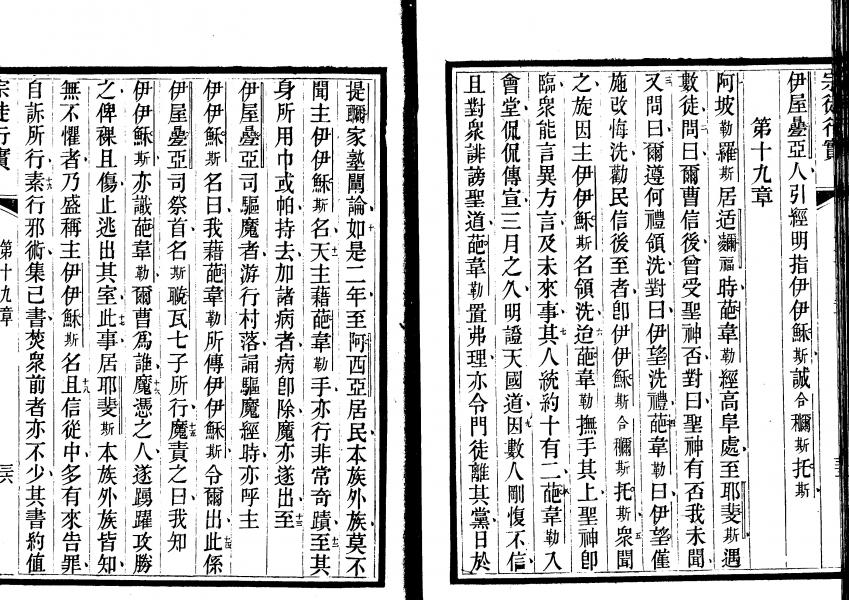 宗徒行實
伊屋㬪亞人引經明指伊伊穌斯誠合穪斯托斯
第十九章
阿坡勒羅斯居适爾福時葩韋勒經高阜處至耶斐斯遇
數徒問曰爾曹信後曾受聖神否對曰聖神有否我未聞三
又問曰爾遵何禮領洗對曰伊望洗禮四葩韋勒曰伊望僅
施改悔洗勸民信後至者卽伊伊穌斯合穪斯托斯五眾聞
之旋因主伊伊穌斯名領洗六迨葩韋勒撫手其上聖神卽
臨眾能言異方言及未來事七其人統約十有二八葩韋勒入
會堂侃侃傳宣三月之久明證天國道九因數人剛愎不信
且對眾誹謗聖道葩韋勒置弗理亦令門徒離其黨日於
提爾家塾闡論十如是二年至阿西亞居民本族外族莫不
聞主伊伊穌斯名十一天主藉葩韋勒手亦行非常奇蹟十二至其
身所用巾或帕持去加諸病者病卽除魔亦遂出十三至
伊屋㬪亞司驅魔者游行村落誦驅魔經時亦呼主
伊伊穌斯名曰我藉葩韋勒所傳伊伊穌斯令爾出十四此係
伊屋㬪亞司祭首名斯瞰瓦七子所行十五魔責之曰我知
伊伊穌斯亦識葩韋勒爾曹爲誰十六魔憑之人遂踴躍攻勝
之俾裸且傷止逃出其室十七此事居耶斐斯本族外族皆知
無不懼者乃盛稱主伊伊穌斯名十八且信從中多有來告罪
自訴所行十九素行邪術集已書焚眾前者亦不少其書約値
宗徒行實
第十九章
三六